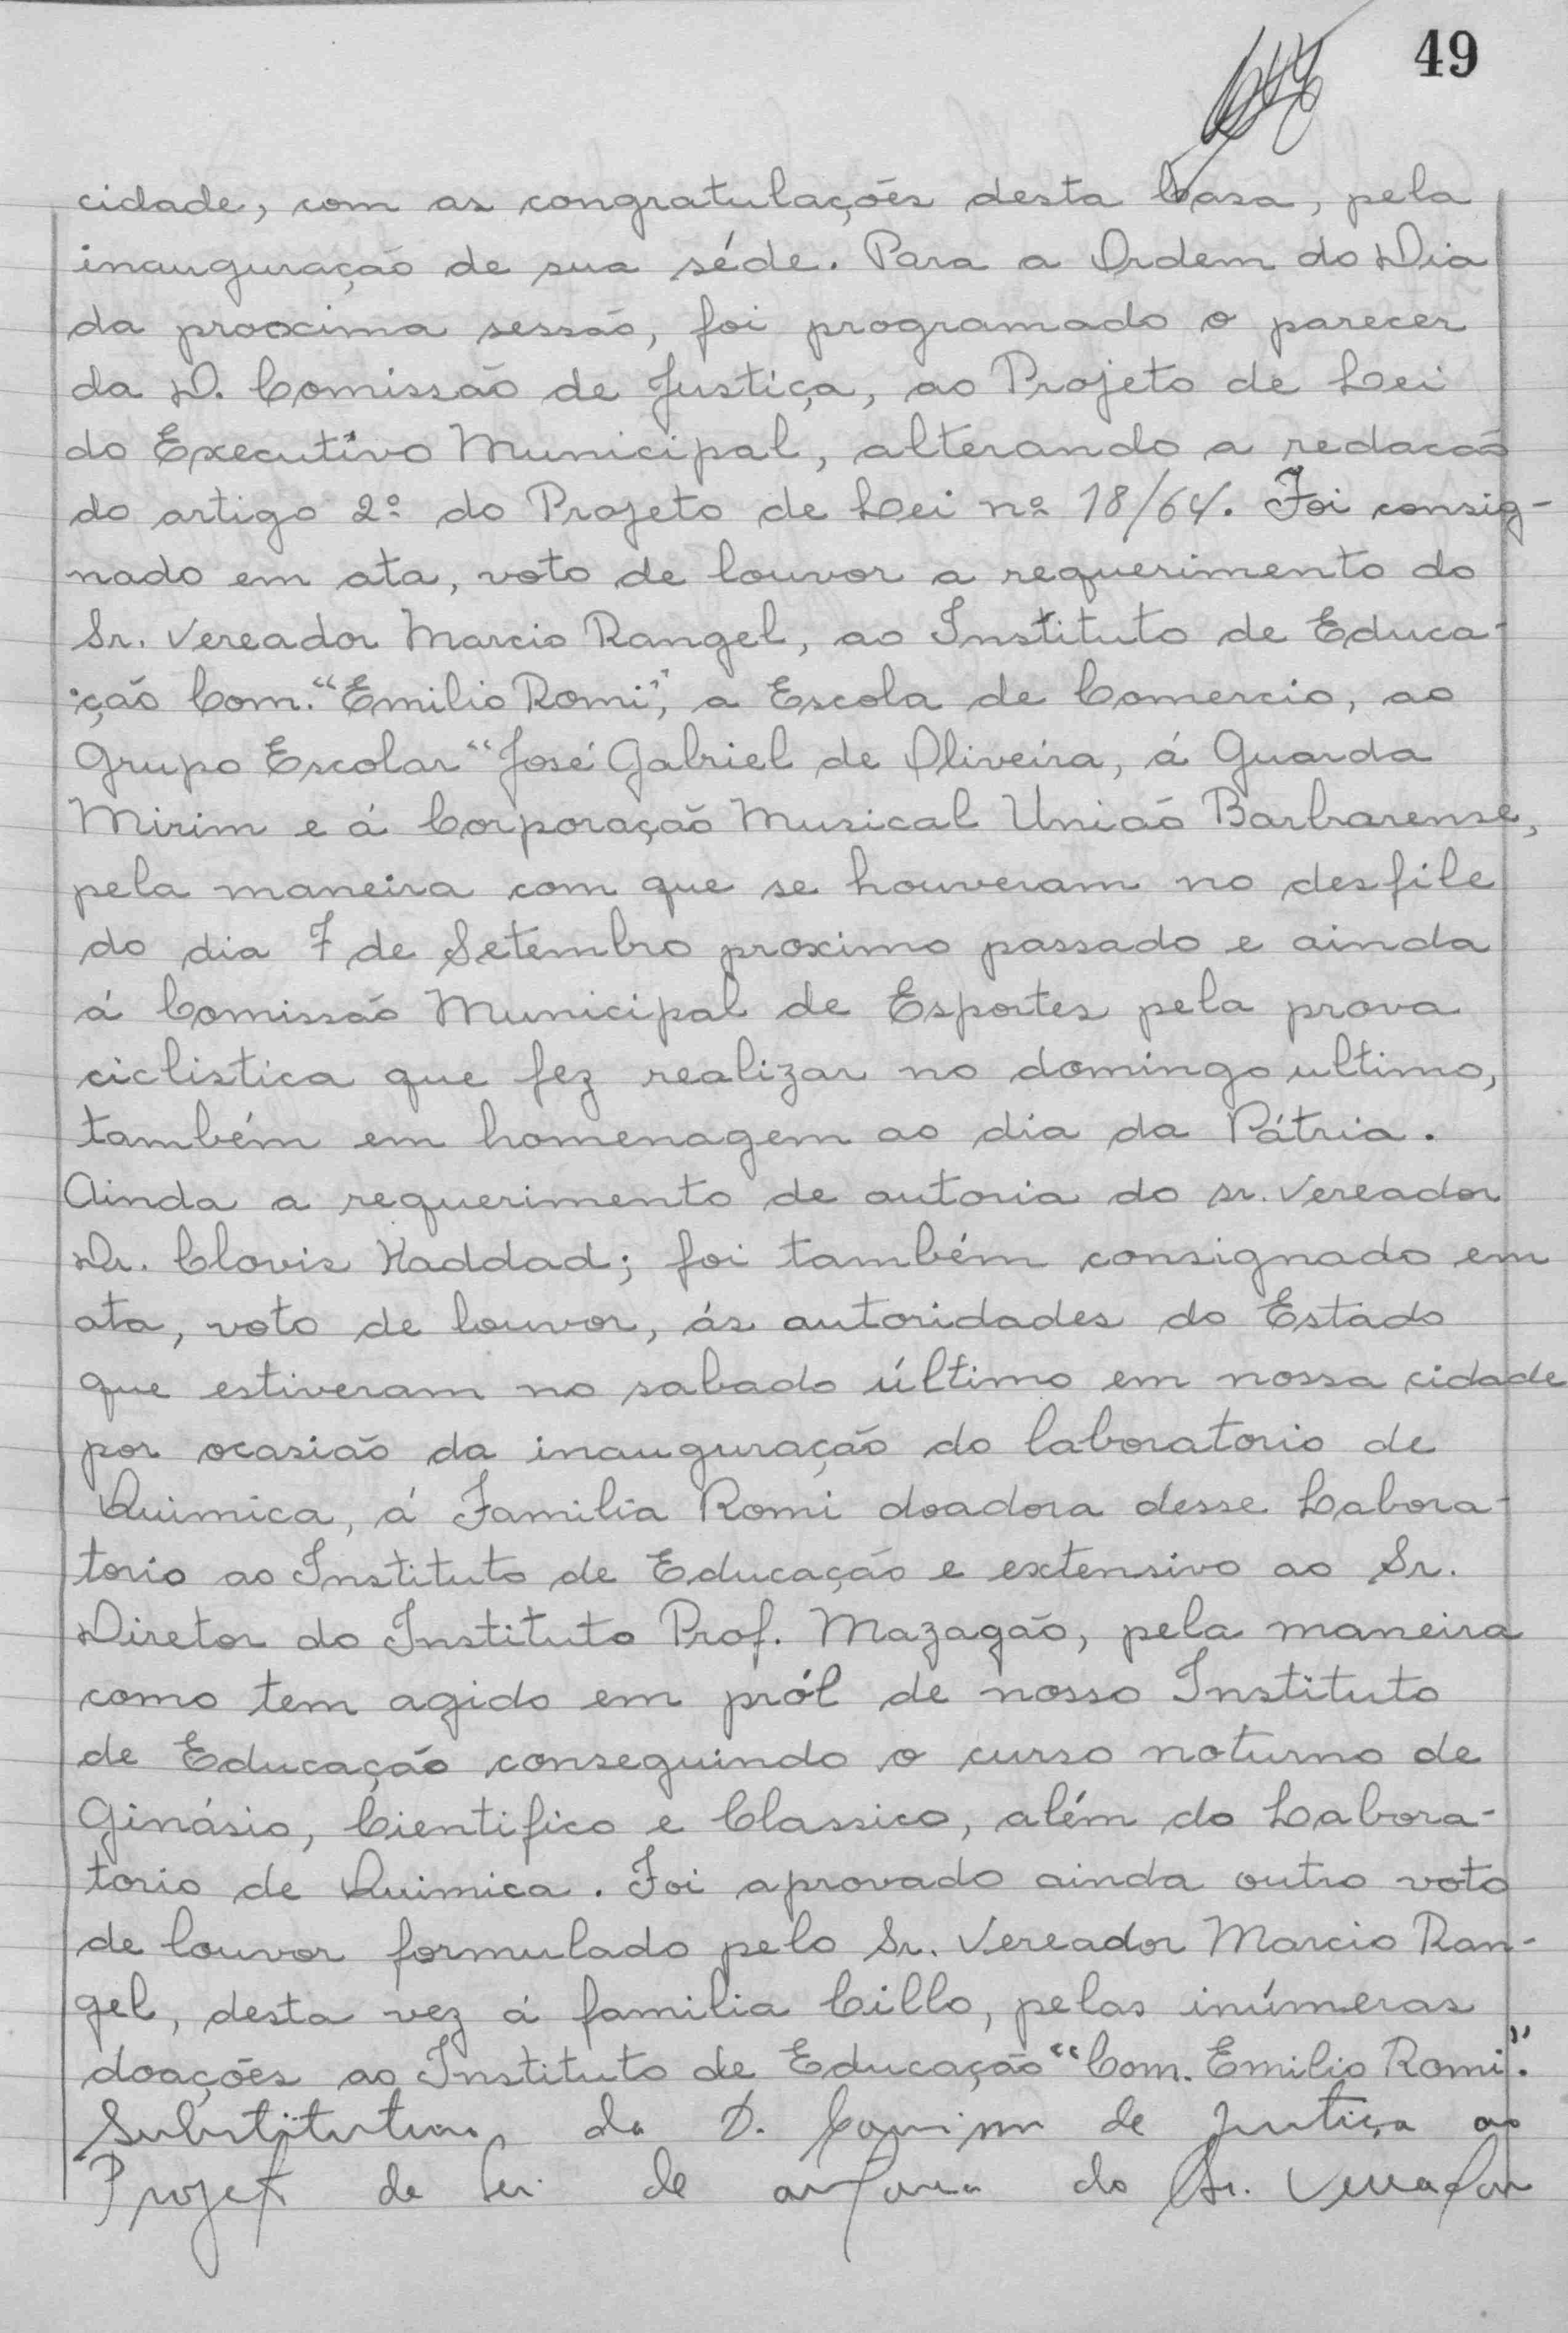 49
cidade, com as congratulações desta Casa, pela
inauguração de sua séde. Para a Ordem do Dia
da prooxima sessão, foi programado o parecer
da D. Comissão de Justiça, ao Projeto de Lei
do Executivo Municipal, alterando a redacão
do artigo 2º do Projeto de Lei nº 18/64. Foi consig-
nado em ata, voto de louvor a requerimento do
Sr. Vereador Marcio Rangel, ao Instituto de Educa-
ção Com. "Emilio Romi", a Escola de Comercio, ao
Grupo Escolar "José Gabriel de Oliveira, á Guarda
Mirim e á Corporação Musical União Barbarense,
pela maneira com que se houveram no desfile
do dia 7 de Setembro proximo passado e ainda
á Comissão Municipal de Esportes pela prova
ciclistica que fez realizar no domingo ultimo,
também em homenagem ao dia da Pátria.
Ainda a requerimento de autoria do sr. Vereador
Dr. Clovis Haddad; foi também consignado em
ata, voto de louvor, ás autoridades do Estado
que estiveram no sabado último em nossa cidade
por ocasião da inauguração do laboratorio de
Quimica, á Familia Romi doadora desse Labora-
torio ao Instituto de Educação e extensivo ao Sr.
Diretor do Instituto Prof. Mazagão, pela maneira
como tem agido em pról de nosso Instituto
de Educação conseguindo o curso noturno de
Ginásio, Cientifico e Classico, além do Labora-
torio de Quimica. Foi aprovado ainda outro voto
de louvor formulado pelo Sr. Vereador Marcio Ran-
gel, desta vez á familia Cillo, pelas inúmeras
doações ao Instituto de Educação "Com. Emilio Romi".
Substitutivo da D. Comissão de Justiça ao
Projeto de Lei de autoria do Sr. Vereador